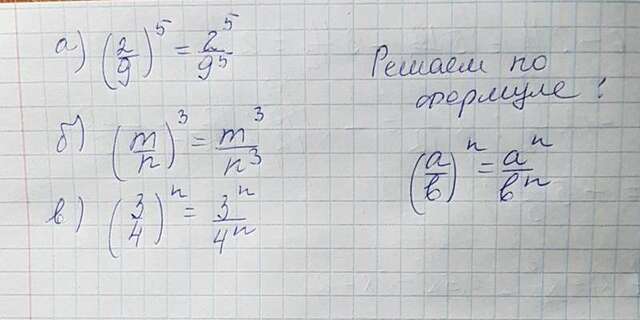 а) (2/9)^5 = 2^5/9^5
б) (m/n)^3 = m^3/n^3
в) (3/4)^n = 3^n/4^n
Решаем по
формуле:
(a/b)^n = a^n/b^n